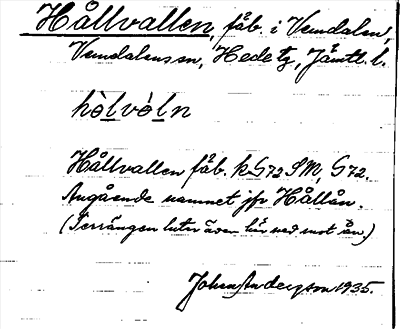 Hållvallen, fäb. i Vemdalen,
Vemdalens sn, Hede tg, Jämtl. l.
hòlvòln
Hållvallen fäb. k. G72 SM, G72.
Angående namnet jfr Hållån.
(Terrängen lutar även här ned mot ån.)
Johan Anderson 1935.